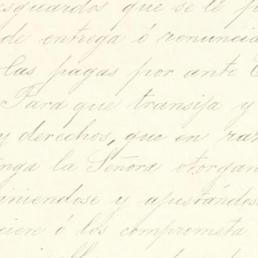 esguardos que se le
de entrega ó renuncia
las pagas por ante
Para que transija y
y derechos, que en raz
nga la Señora otorgan
iniendose y ajustándos
cien ó los comprometa